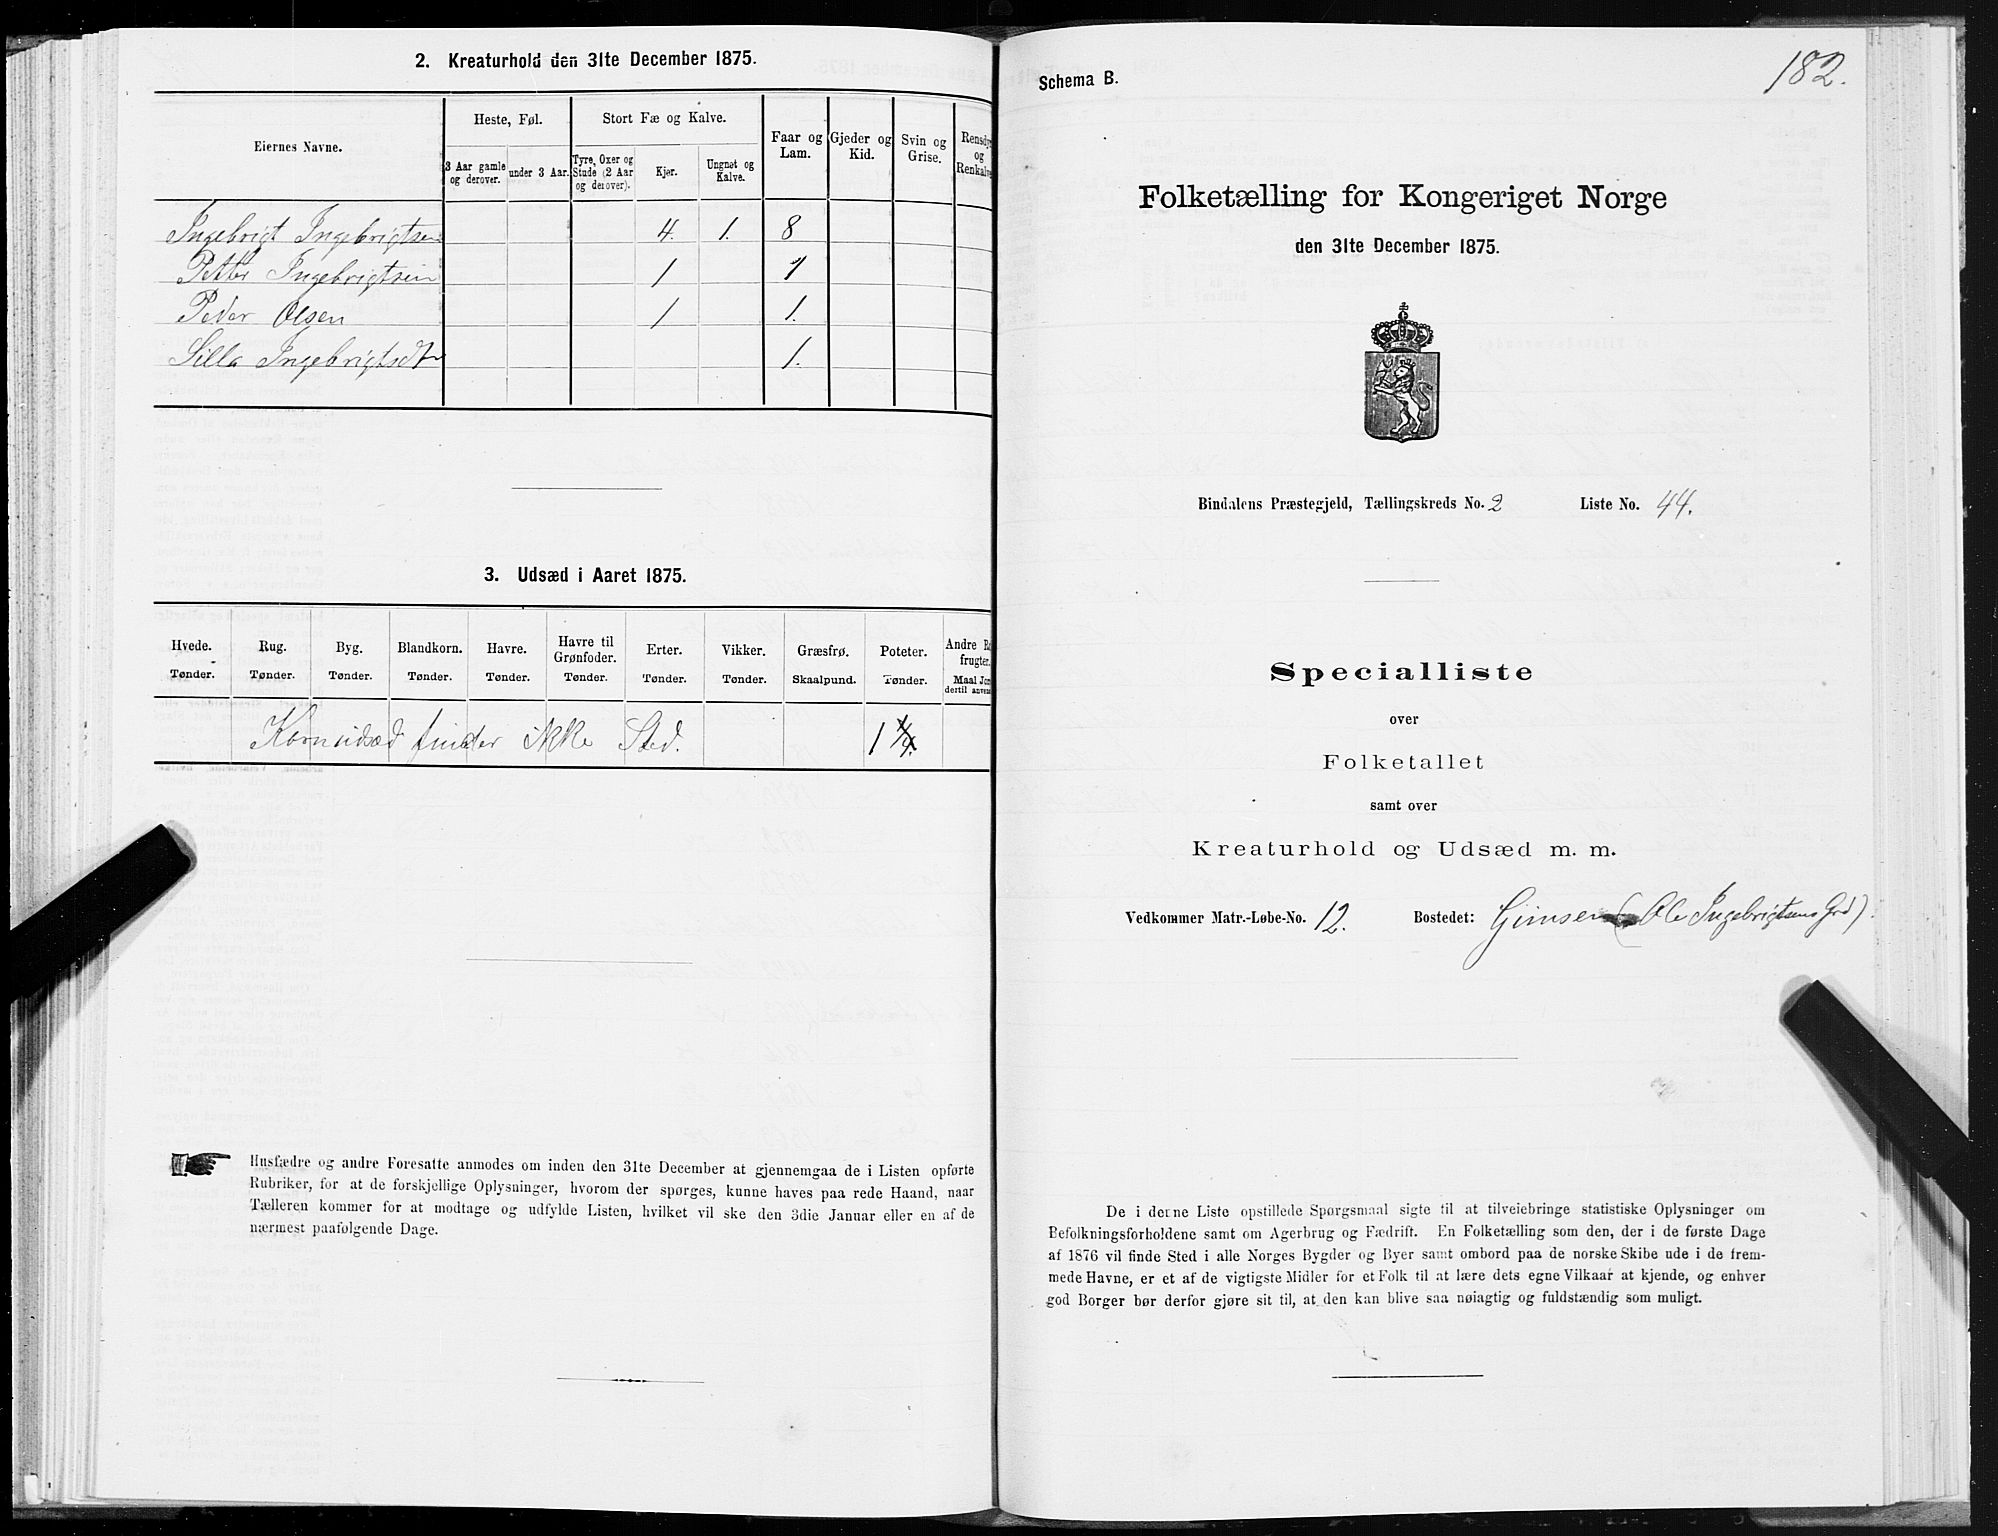 2. Kreaturhold den 31te December 1875.
Eiernes Navne.
Heste, Føl.
Stort Fæ og Kalve.
Faar og Lam.
Gjeder og Kid.
Svin og Grise.
Rensdyr og Renkalve
3 Aar gamle og derover.
under 3 Aar.
Tyre, Oxer og Stude (2 Aar og derover).
Kjør.
Ungnøt og Kalve.
Ingebrigt Ingebrigtsen 4. 1. 8
Petter Ingebrigtsen 1 1
Peder Olsen 1 1.
Silla Ingebrigtsdtr 1.
3. Udsæd i Aaret 1875.
Hvede. Rug. Byg. Blandkorn. Havre. Havre til Grønfoder. Erter. Vikker. Græsfrø. Poteter. Andre Ro frugter.
Tønder. Tønder. Tønder. Tønder. Tønder. Tønder. Tønder. Tønder. Skaalpund. Tønder. Maal Jor dertil anven
Kornudsæd finder ikke Sted. 1 1/4.
Husfædre og andre Foresatte anmodes om inden den 31te December at gjennemgaa de i Listen opførte
Rubriker, for at de forskjellige Oplysninger, hvorom der spørges, kunne haves paa rede Haand, naar
Tælleren kommer for at modtage og udfylde Listen, hvilket vil ske den 3die Januar eller en af de
nærmest paafølgende Dage.
182.
Schema B.
Folketælling for Kongeriget Norge
den 31te December 1875.
Bindalens Præstegjeld, Tællingskreds No. 2 Liste No. 44.
Specialliste
over
Folketallet
samt over
Kreaturhold og Udsæd m. m.
Vedkommer Matr.-Løbe-No. 12. Bostedet: Gimsen (Ole Ingebrigtsens Grd).
De i denne Liste opstillede Spørgsmaal sigte til at tilveiebringe statistiske Oplysninger om
Befolkningsforholdene samt om Agerbrug og Fædrift. En Folketælling som den, der i de første Dage
af 1876 vil finde Sted i alle Norges Bygder og Byer samt ombord paa de norske Skibe ude i de frem-
mede Havne, er et af de vigtigste Midler for et Folk til at lære dets egne Vilkaar at kjende, og enhver
god Borger bør derfor gjøre sit til, at den kan blive saa nøiagtig og fuldstændig som muligt.